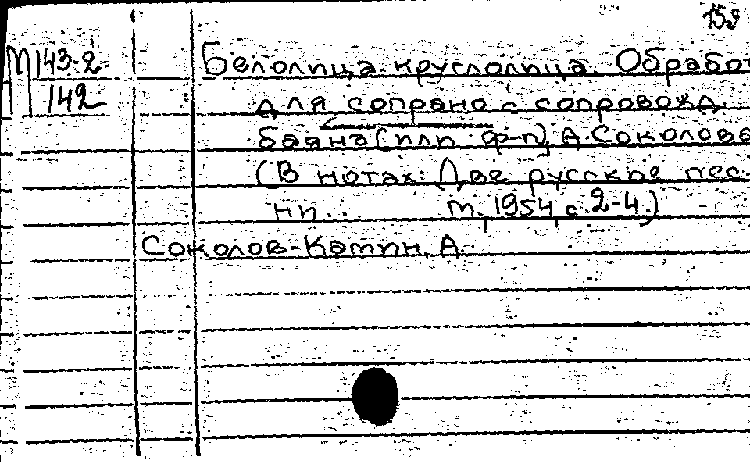 159
М 143-2 Белолица-круглолица. Обработ
142 для сопрано с сопровожд.
баяна (или ф-п) А. Соколова
(В нотах: Две русские пес-
ни... М., 1954, с. 2-4.)
Соколов-Камин, А.